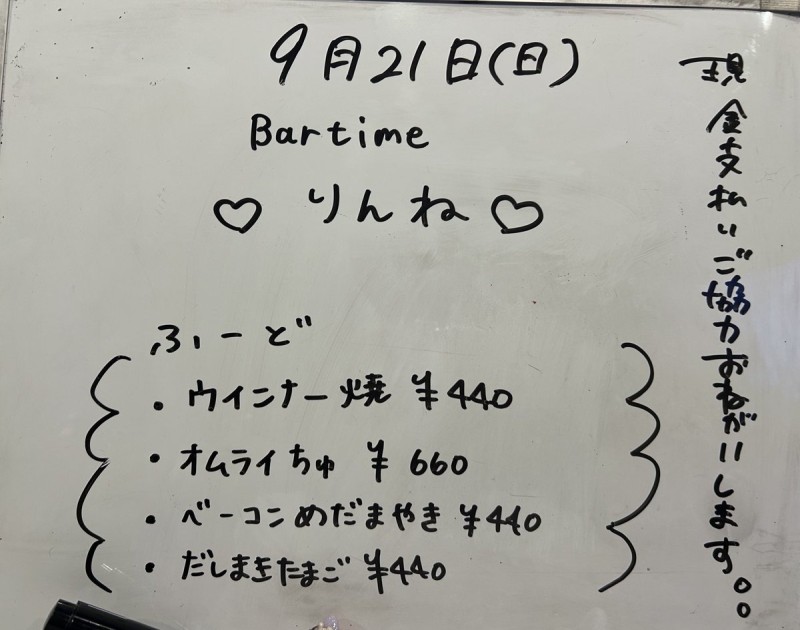 9月21日(日)
Bartime
♡ りんね ♡
ふーど
・ウインナー焼 ¥440
・オムライちゅ ¥660
・ベーコンめだまやき ¥440
・だしまきたまご ¥440
現金支払いご協力おねがいします。。